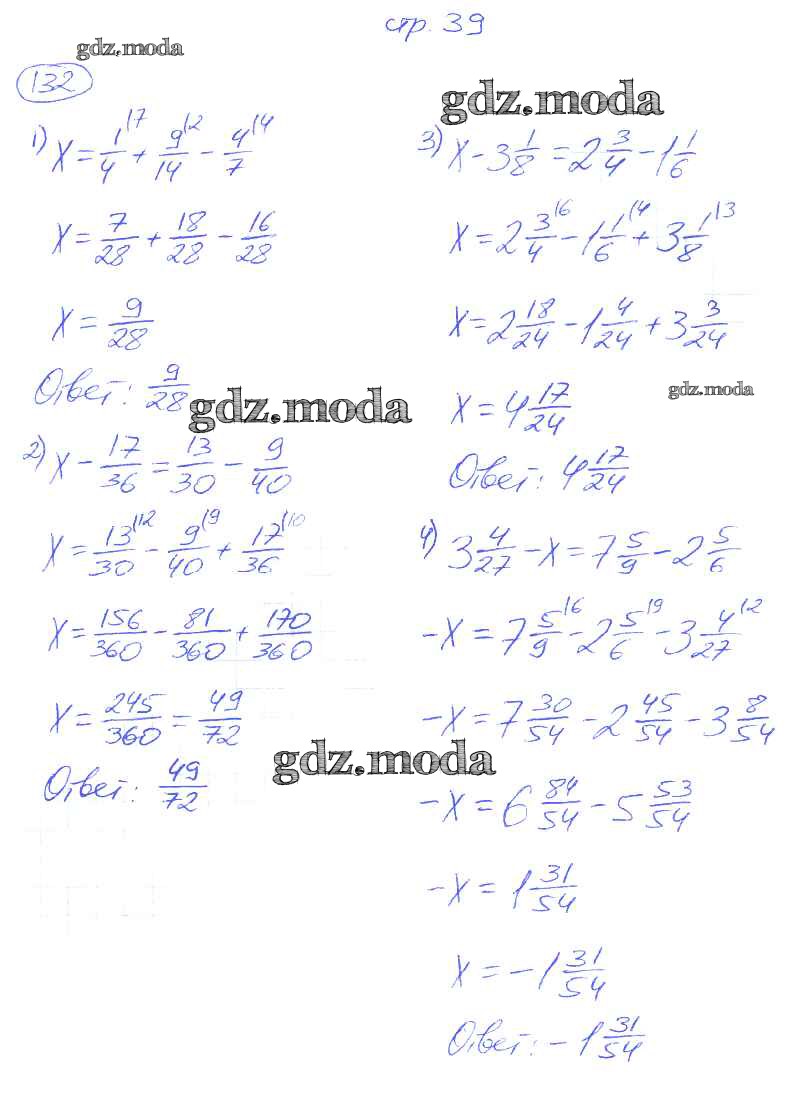 стр. 39
gdz.moda
132
gdz.moda
1) x = 1/4 |7 + 9/14 |2 - 4/7 |4
x = 7/28 + 18/28 - 16/28
x = 9/28
Ответ: 9/28
gdz.moda
2) x - 17/36 = 13/30 - 9/40
x = 13/30 |12 - 9/40 |9 + 17/36 |10
x = 156/360 - 81/360 + 170/360
x = 245/360 = 49/72
Ответ: 49/72
3) x - 3 1/8 = 2 3/4 - 1 1/6
x = 2 3/4 |6 - 1 1/6 |4 + 3 1/8 |3
x = 2 18/24 - 1 4/24 + 3 3/24
gdz.moda
x = 4 17/24
Ответ: 4 17/24
4) 3 4/27 - x = 7 5/9 - 2 5/6
-x = 7 5/9 |6 - 2 5/6 |9 - 3 4/27 |2
-x = 7 30/54 - 2 45/54 - 3 8/54
gdz.moda
-x = 6 84/54 - 5 53/54
-x = 1 31/54
x = -1 31/54
Ответ: -1 31/54